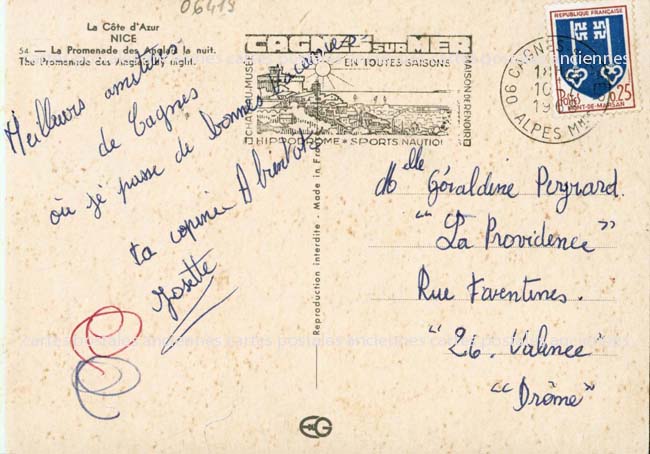 06419
La Côte d'Azur
NICE
54 — La Promenade des Anglais la nuit.
The Promenade des Anglais by night.
Meilleurs amitiés
de Cagnes
où je passe de bonnes vacances
A bientôt
ta copine
Josette
Reproduction interdite - Made in France
CAGNES SUR MER
EN TOUTES SAISONS
CHATEAU-MUSEE
MAISON DE RENOIR
HIPPODROME * SPORTS NAUTIQUES
06 CAGNES
ALPES MMES
REPUBLIQUE FRANÇAISE
0,25
MONT-DE-MARSAN
Melle Géraldine Peyrard.
"La Providence"
Rue Faventines.
"26. Valence"
"Drôme"
cartes postales anciennes